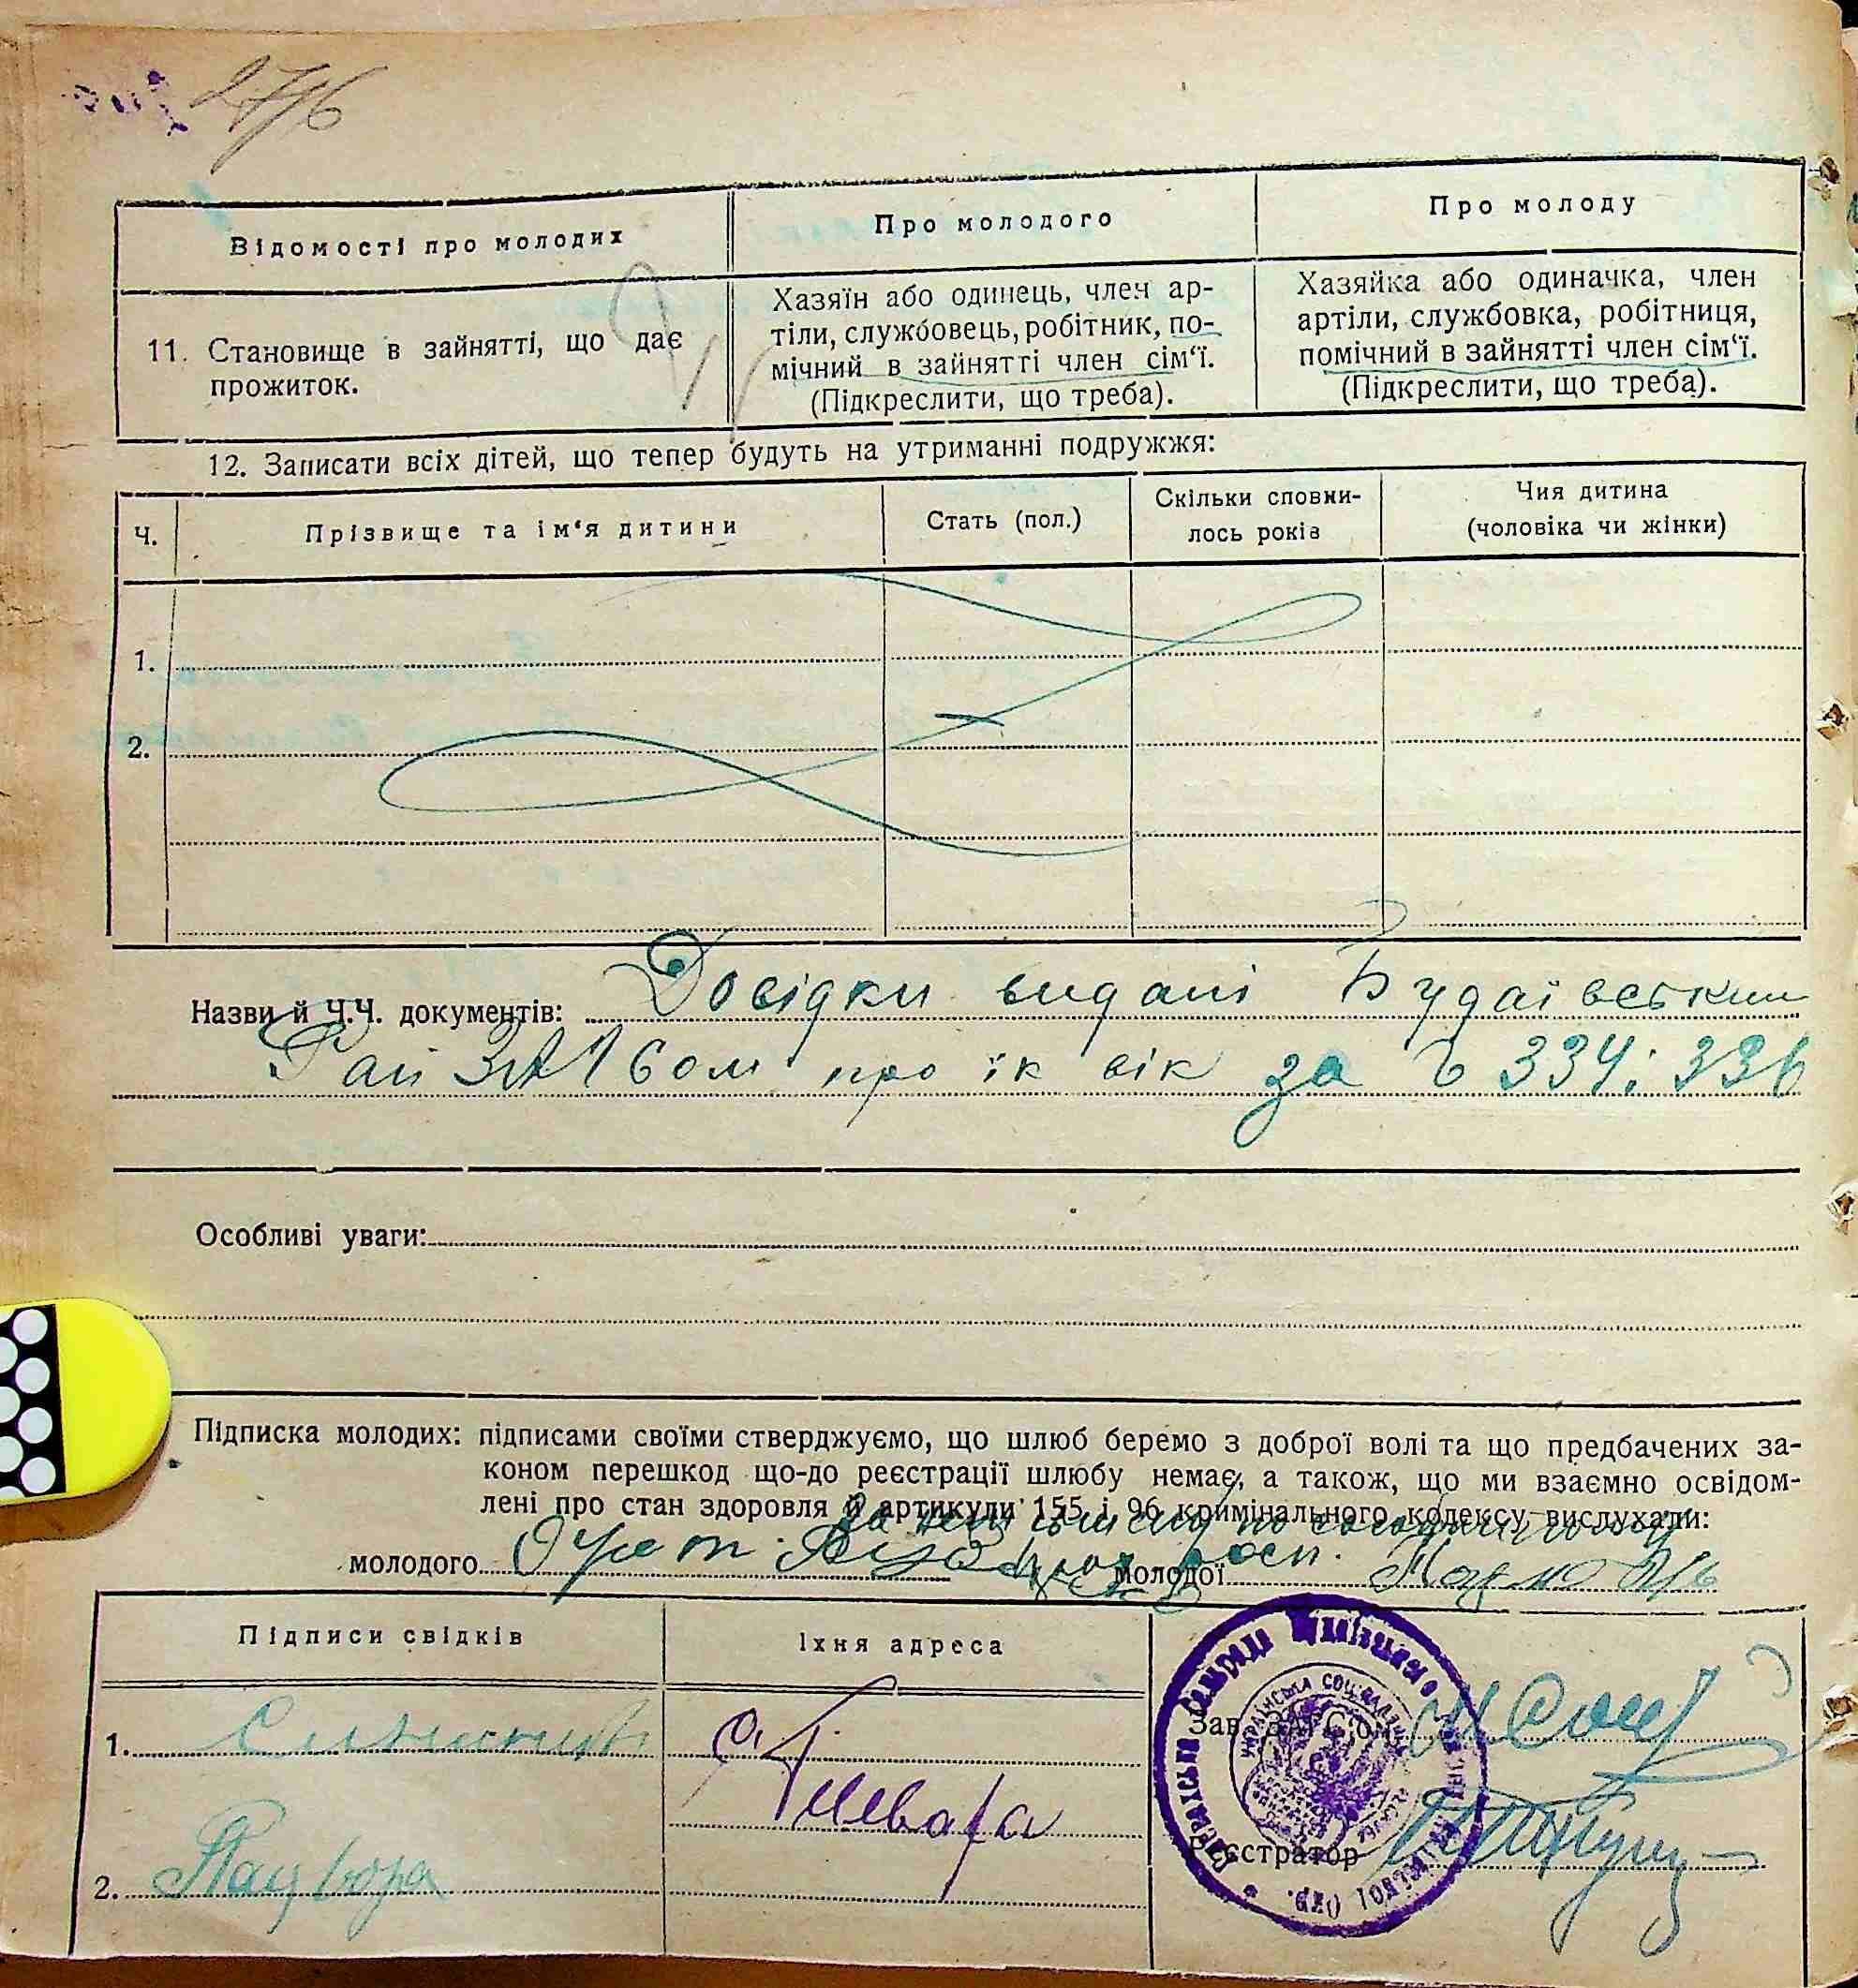 276
Відомості про молодих
Про молодого
Про молоду
11. Становище в зайнятті, що дає
прожиток.
Хазяїн або одинець, член ар-
тіли, службовець, робітник, по-
мічний в зайнятті член сім‘ї.
(Підкреслити, що треба).
Хазяйка або одиначка, член
артіли, службовка, робітниця,
помічний в зайнятті член сім‘ї.
(Підкреслити, що треба).
12. Записати всіх дітей, що тепер будуть на утриманні подружжя:
Ч.
Прізвище та ім‘я дитини
Стать (пол.)
Скільки сповни-
лось років
Чия дитина
(чоловіка чи жінки)
1.
2.
Назви й Ч.Ч. документів: Довідки видані Будаївським
Рай ЗАГСом про їх вік за Ч 334 і 336
Особливі уваги:
Підписка молодих: підписами своїми стверджуємо, що шлюб беремо з доброї волі та що предбачених за-
коном перешкод що-до реєстрації шлюбу немає, а також, що ми взаємно освідом-
лені про стан здоровля й артикули 155 і 96 кримінального кодексу вислухали:
молодого
молодої
Підписи свідків
Їхня адреса
1.
2.
Зав. ЗАГСом
Реєстратор
УКРАЇНСЬКА